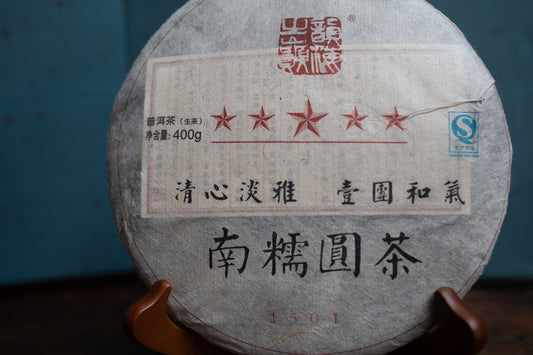 ®
普洱茶（生茶）
净含量:400g
清心淡雅 壹團和氣
南糯圓茶
1501